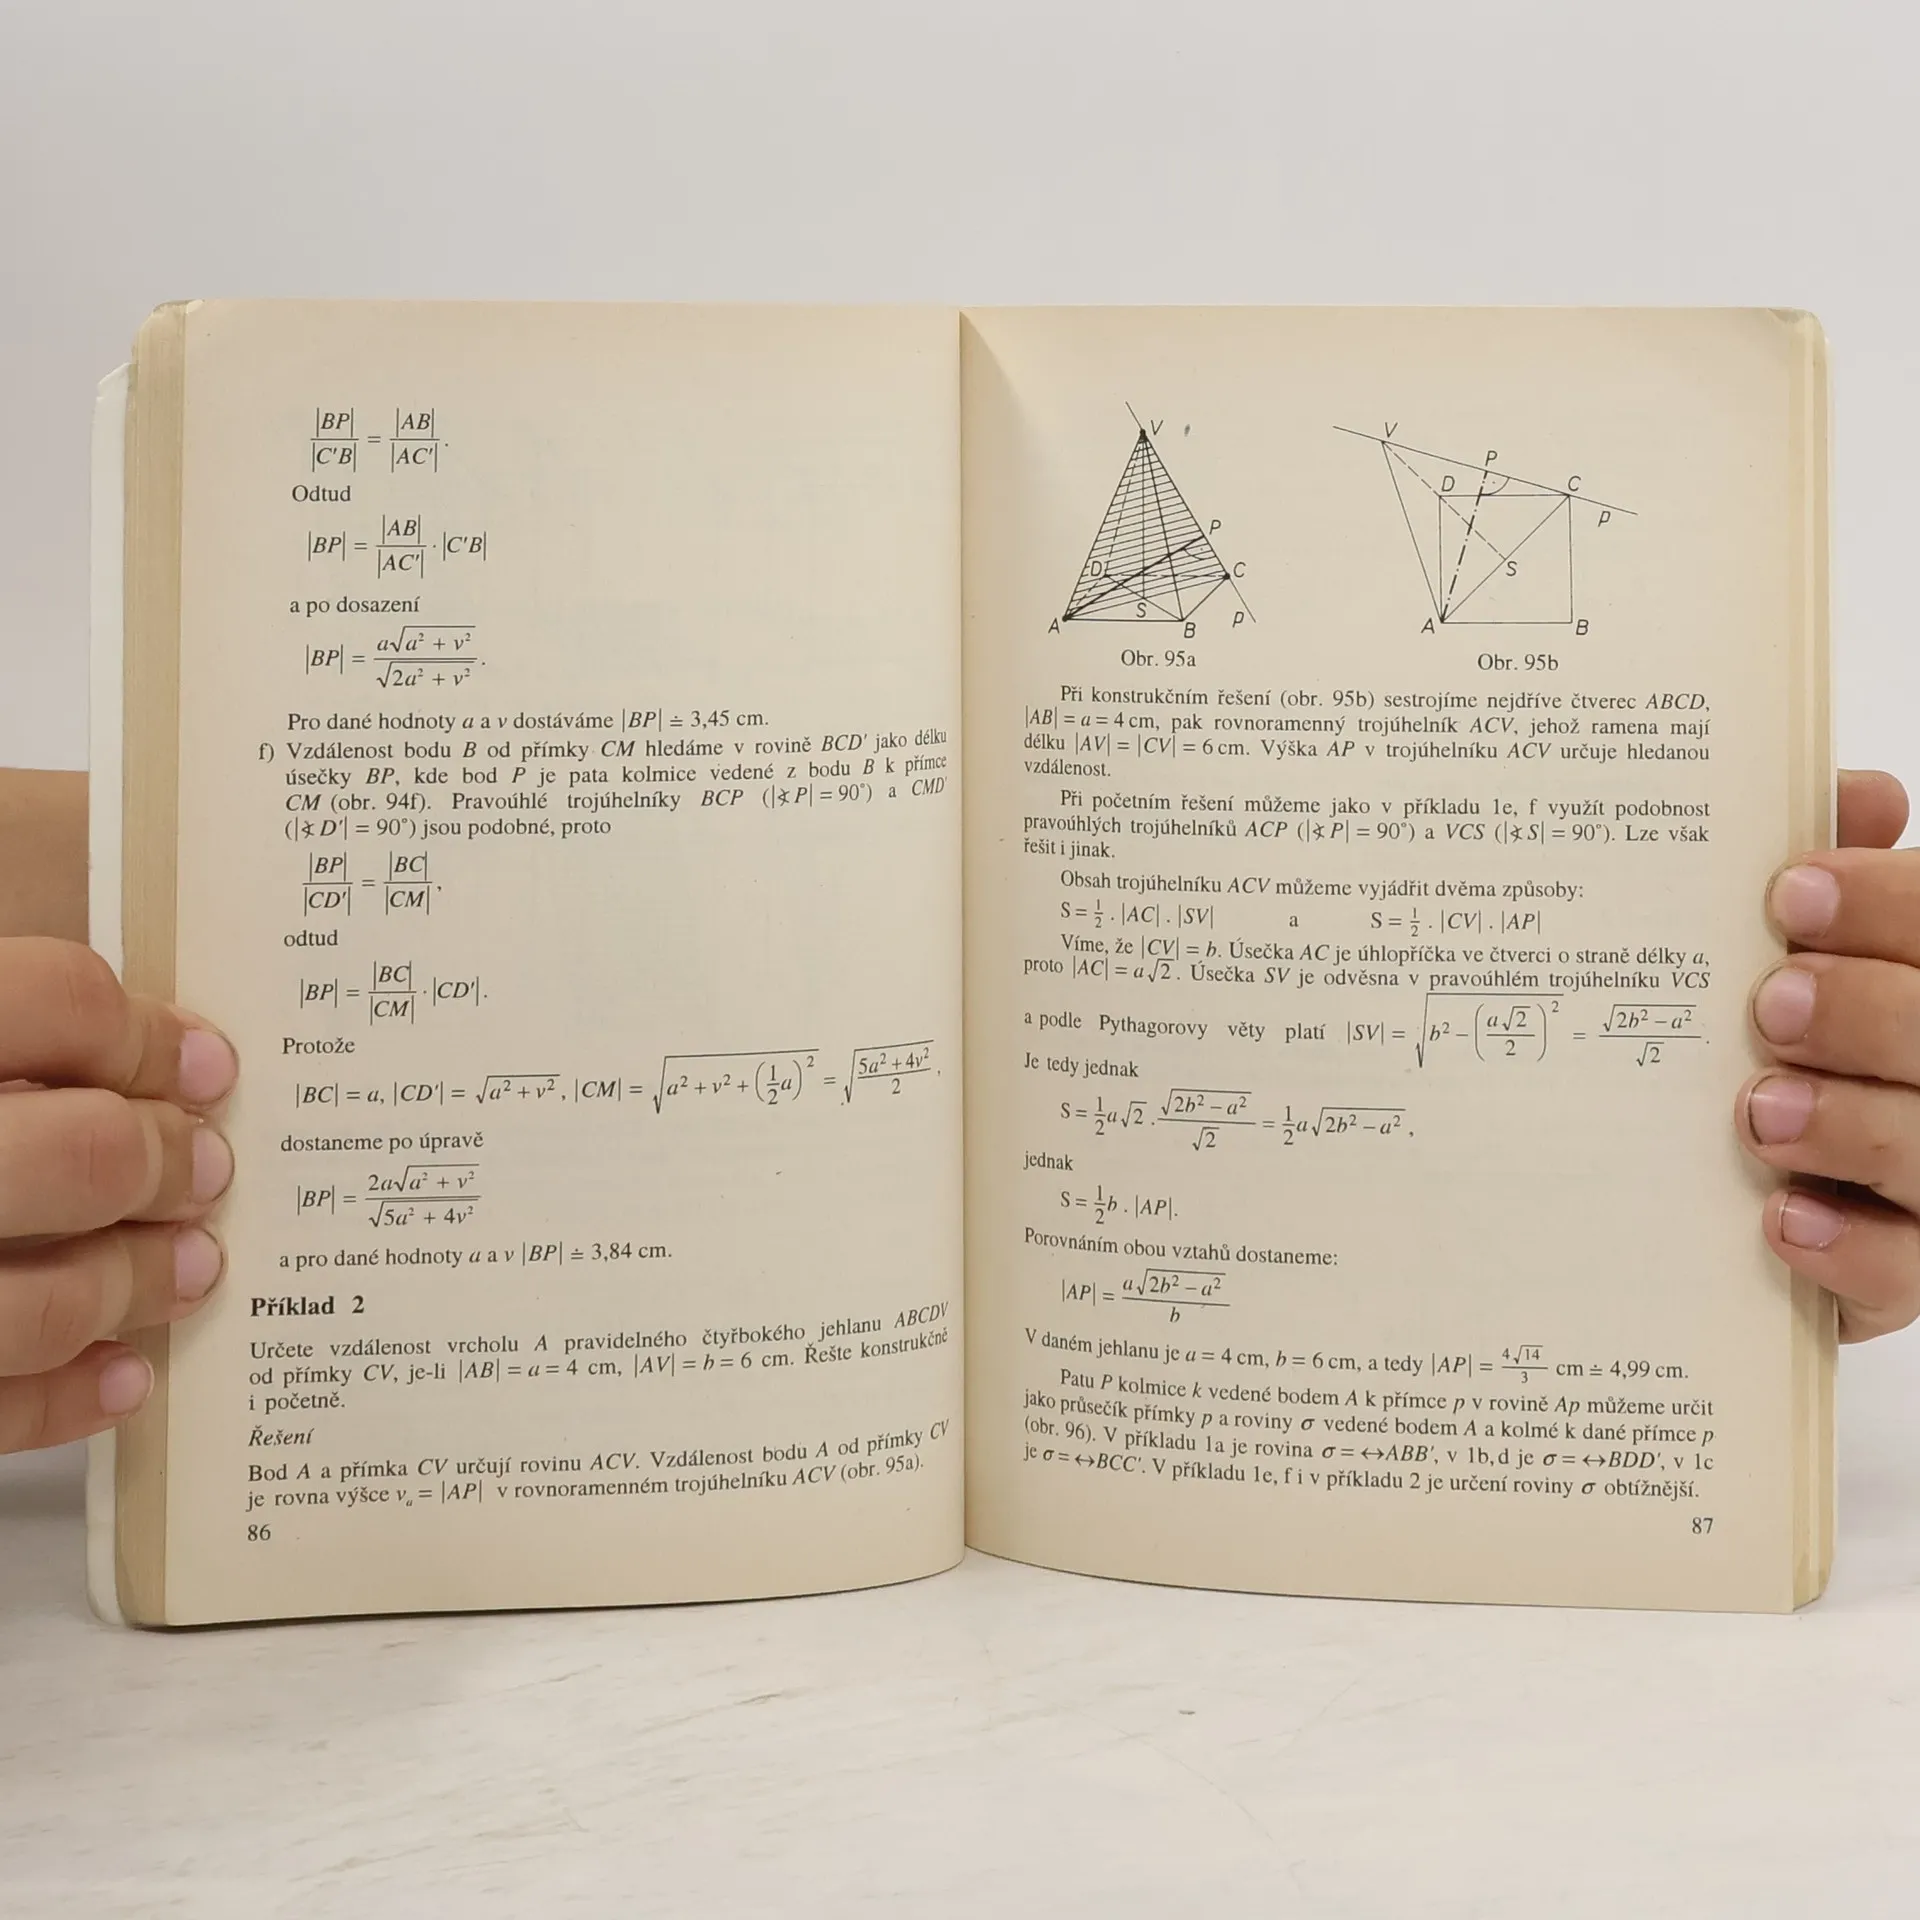 |BP| / |C'B| = |AB| / |AC'| .
Odtud
|BP| = |AB| / |AC'| · |C'B|
a po dosazení
|BP| = a√(a² + v²) / √(2a² + v²) .
Pro dané hodnoty a a v dostáváme |BP| ≐ 3,45 cm.
f) Vzdálenost bodu B od přímky CM hledáme v rovině BCD' jako délku
úsečky BP, kde bod P je pata kolmice vedené z bodu B k přímce
CM (obr. 94f). Pravoúhlé trojúhelníky BCP (|∢ P| = 90°) a CMD'
(|∢ D'| = 90°) jsou podobné, proto
|BP| / |CD'| = |BC| / |CM| ,
odtud
|BP| = |BC| / |CM| · |CD'| .
Protože
|BC| = a, |CD'| = √(a² + v²) , |CM| = √(a² + v² + (1/2 a)²) = √((5a² + 4v²) / 2) ,
dostaneme po úpravě
|BP| = 2a√(a² + v²) / √(5a² + 4v²)
a pro dané hodnoty a a v |BP| ≐ 3,84 cm.
Příklad 2
Určete vzdálenost vrcholu A pravidelného čtyřbokého jehlanu ABCDV
od přímky CV, je-li |AB| = a = 4 cm, |AV| = b = 6 cm. Řešte konstrukčně
i početně.
Řešení
Bod A a přímka CV určují rovinu ACV. Vzdálenost bodu A od přímky CV
je rovna výšce vₐ = |AP| v rovnoramenném trojúhelníku ACV (obr. 95a).
86
V
P
D
C
S
A
B
p
Obr. 95a
V
P
D
C
p
S
A
B
Obr. 95b
Při konstrukčním řešení (obr. 95b) sestrojíme nejdříve čtverec ABCD,
|AB| = a = 4 cm, pak rovnoramenný trojúhelník ACV, jehož ramena mají
délku |AV| = |CV| = 6 cm. Výška AP v trojúhelníku ACV určuje hledanou
vzdálenost.
Při početním řešení můžeme jako v příkladu 1e, f využít podobnost
pravoúhlých trojúhelníků ACP (|∢ P| = 90°) a VCS (|∢ S| = 90°). Lze však
řešit i jinak.
Obsah trojúhelníku ACV můžeme vyjádřit dvěma způsoby:
S = 1/2 . |AC| . |SV| a S = 1/2 . |CV| . |AP|
Víme, že |CV| = b. Úsečka AC je úhlopříčka ve čtverci o straně délky a,
proto |AC| = a√2 . Úsečka SV je odvěsna v pravoúhlém trojúhelníku VCS
a podle Pythagorovy věty platí |SV| = √(b² − (a√2 / 2)²) = √(2b² − a²) / √2 .
Je tedy jednak
S = 1/2 a√2 . √(2b² − a²) / √2 = 1/2 a√(2b² − a²) ,
jednak
S = 1/2 b . |AP|.
Porovnáním obou vztahů dostaneme:
|AP| = a√(2b² − a²) / b
V daném jehlanu je a = 4 cm, b = 6 cm, a tedy |AP| = 4√14 / 3 cm ≐ 4,99 cm.
Patu P kolmice k vedené bodem A k přímce p v rovině Ap můžeme určit
jako průsečík přímky p a roviny σ vedené bodem A a kolmé k dané přímce p
(obr. 96). V příkladu 1a je rovina σ = ↔ABB', v 1b,d je σ = ↔BDD', v 1c
je σ = ↔BCC'. V příkladu 1e, f i v příkladu 2 je určení roviny σ obtížnější.
87